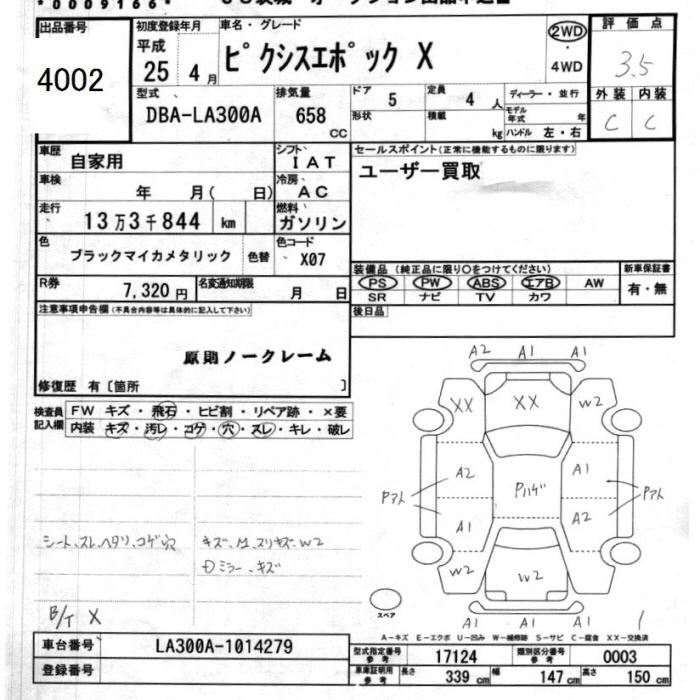 0009166
出品番号
4002
初度登録年月
平成
25 4月
車名・グレード
ピクシスエポック X
2WD
・
4WD
評価点
3.5
型式
DBA-LA300A
排気量
658
CC
ドア 5
定員 4 人
ディーラー・並行
形状
積載 kg
モデル年式 年
ハンドル 左・右
外装 内装
C C
車歴 自家用
シフト IAT
車検 年 月( 日)
冷房 AC
走行 13万3千844 km
燃料 ガソリン
色 ブラックマイカメタリック 色替
色コード X07
R券 7,320円
名変通知期限 月 日
セールスポイント(正常に機能するものに限ります)
ユーザー買取
装備品 (純正品に限り○をつけてください)
新車保証書
PS PW ABS エアB AW
有・無
SR ナビ TV カワ
後日品
注意事項申告欄(不具合内容等は具体的に記入して下さい)
原則ノークレーム
修復歴 有〔箇所 〕
検査員記入欄
FW キズ・飛石・ヒビ割・リペア跡・×要
内装 キズ・汚レ・コゲ・穴・スレ・キレ・破レ
シート、スレ、ヘタリ、コゲ穴
W2
ミラー、キズ
B/T X
A2 A1 A1
XX XX W2
A2 A1
Pハゲ
A1 A2
W2 W2
A1 A1 A1
スペア
A-キズ E-エクボ U-凹み W-補修跡 S-サビ C-腐食 XX-交換済
車台番号 LA300A-1014279
登録番号
型式指定番号 参考 17124
類別区分番号 参考 0003
車庫証明用 参考
長さ 339 cm 幅 147 cm 高さ 150 cm